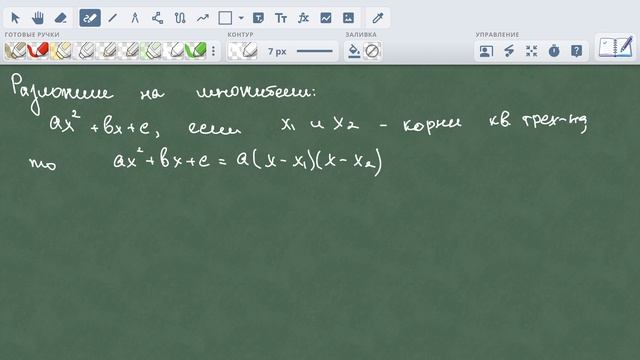 ГОТОВЫЕ РУЧКИ
КОНТУР
ЗАЛИВКА
УПРАВЛЕНИЕ
7 px
Разложим на множители:
ax² + bx + c, если x₁ и x₂ - корни кв трех-на,
то ax² + bx + c = a(x - x₁)(x - x₂)